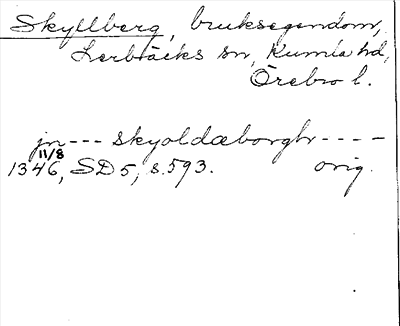 Skyllberg, bruksegendom,
Lerbäcks sn, Kumla hd,
Örebro l.
jn --- skyoldæborghr ----
11/8
1346, SD 5, s. 593. orig.